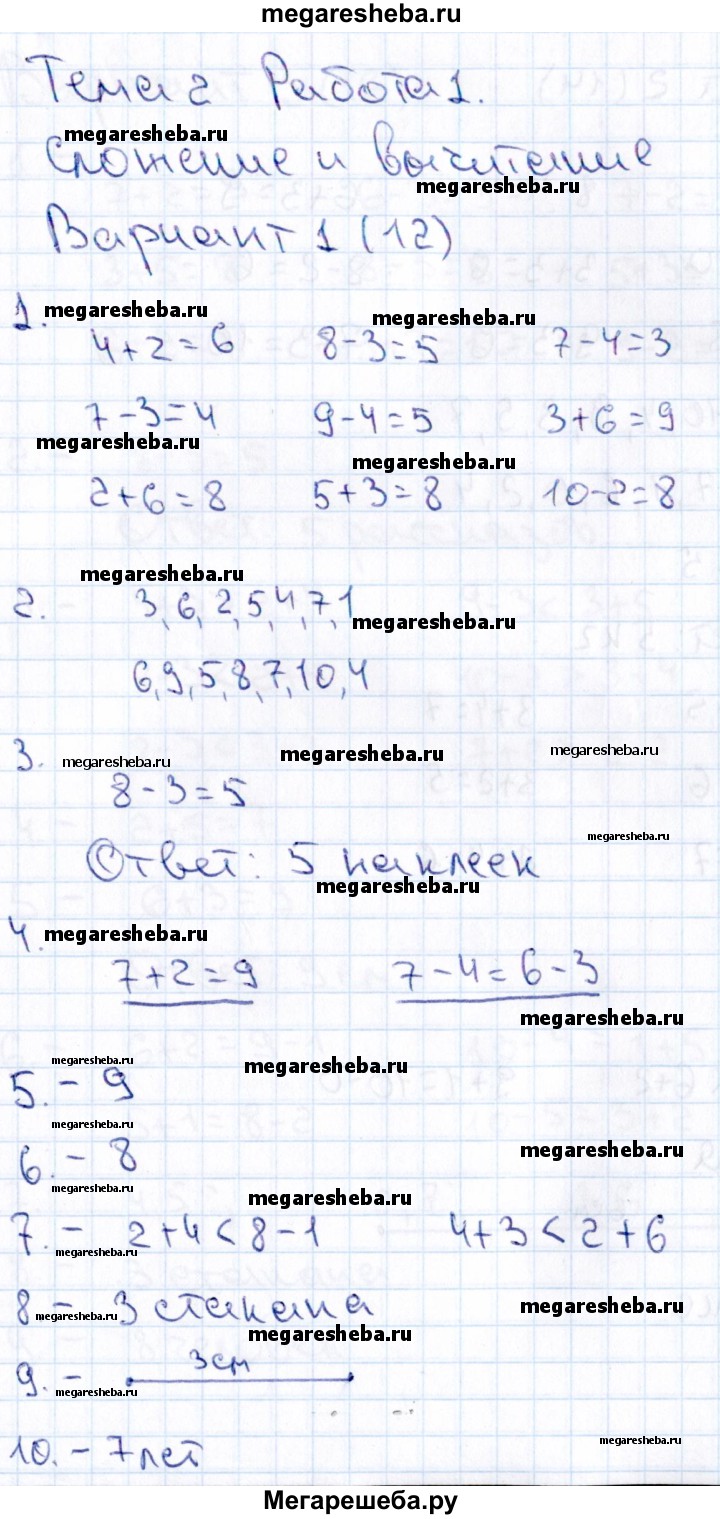 megaresheba.ru
Тема 2 Работа 1.
megaresheba.ru
Сложение и вычитание
megaresheba.ru
Вариант 1 (12)
1. megaresheba.ru megaresheba.ru
4+2=6 8-3=5 7-4=3
7-3=4 9-4=5 3+6=9
megaresheba.ru megaresheba.ru
2+6=8 5+3=8 10-2=8
megaresheba.ru
2. 3,6,2,5,4,7,1
megaresheba.ru
6,9,5,8,7,10,4
megaresheba.ru
3. megaresheba.ru megaresheba.ru megaresheba.ru
8-3=5
megaresheba.ru
Ответ: 5 наклеек
megaresheba.ru
4. megaresheba.ru
7+2=9 7-4=6-3
megaresheba.ru
megaresheba.ru megaresheba.ru
5. - 9
megaresheba.ru
6. - 8
megaresheba.ru
megaresheba.ru megaresheba.ru
7. - 2+4<8-1 4+3<2+6
megaresheba.ru
8 - 3 стакана
megaresheba.ru megaresheba.ru
megaresheba.ru
9. - 3см
megaresheba.ru
10. - 7 лет
megaresheba.ru
Мегарешеба.ру